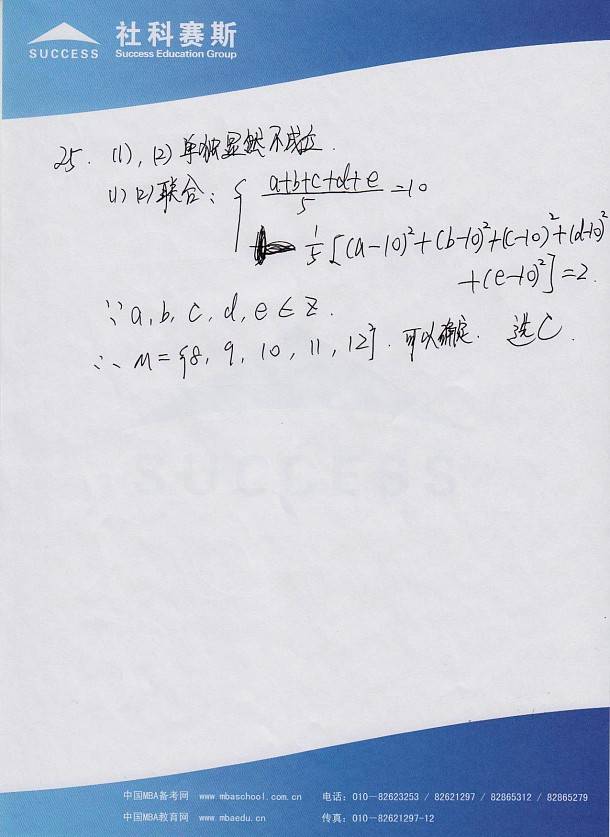 社科赛斯
SUCCESS
Success Education Group
25. (1), (2) 单独显然不成立.
(1) (2) 联合: { (a+b+c+d+e)/5 = 10
1/5 [(a-10)²+(b-10)²+(c-10)²+(d-10)²
+(e-10)²] = 2.
∵ a, b, c, d, e ∈ Z.
∴ M = {8, 9, 10, 11, 12}. 可以确定. 选C.
SUCCESS
中国MBA备考网 www.mbaschool.com.cn 电话: 010-82623253 / 82621297 / 82865312 / 82865279
中国MBA教育网 www.mbaedu.cn 传真: 010-82621297-12